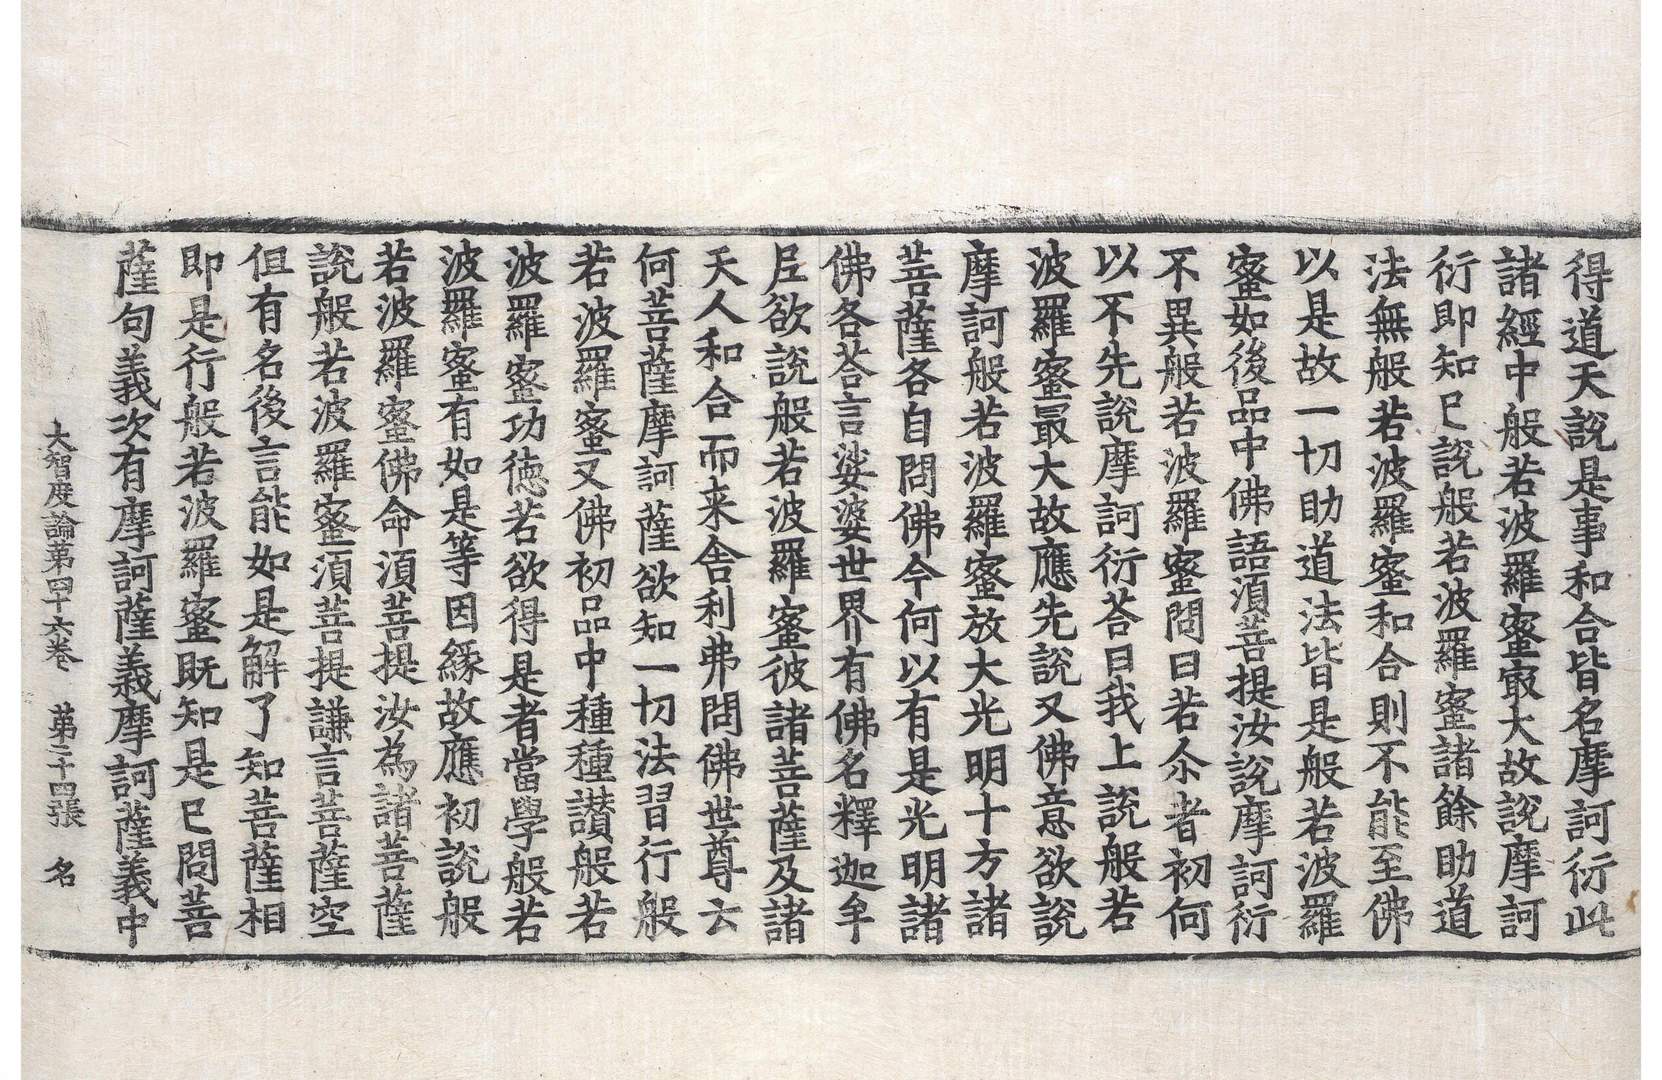 得道天說是事和合皆名摩訶衍此
諸經中般若波羅蜜㝡大故說摩訶
衍即知已說般若波羅蜜諸餘助道
法無般若波羅蜜和合則不能至佛
以是故一切助道法皆是般若波羅
蜜如後品中佛語湏菩提汝說摩訶衍
不異般若波羅蜜問曰若尒者初何
以不先說摩訶衍荅曰我上說般若
波羅蜜最大故應先說又佛意欲說
摩訶般若波羅蜜放大光明十方諸
菩薩各自問佛今何以有是光明諸
佛各荅言娑婆世界有佛名釋迦牟
尼欲說般若波羅蜜彼諸菩薩及諸
天人和合而来舎利弗問佛世尊云
何菩薩摩訶薩欲知一切法習行般
若波羅蜜又佛初品中種種讃般若
波羅蜜功德若欲得是者當學般若
波羅蜜有如是等因緣故應初說般
若波羅蜜佛命湏菩提汝為諸菩薩
說般若波羅蜜湏菩提謙言菩薩空
但有名後言能如是解了知菩薩相
即是行般若波羅蜜既知是已問菩
薩句義次有摩訶薩義摩訶薩義中
大智度論第四十六卷 第二十四張 名